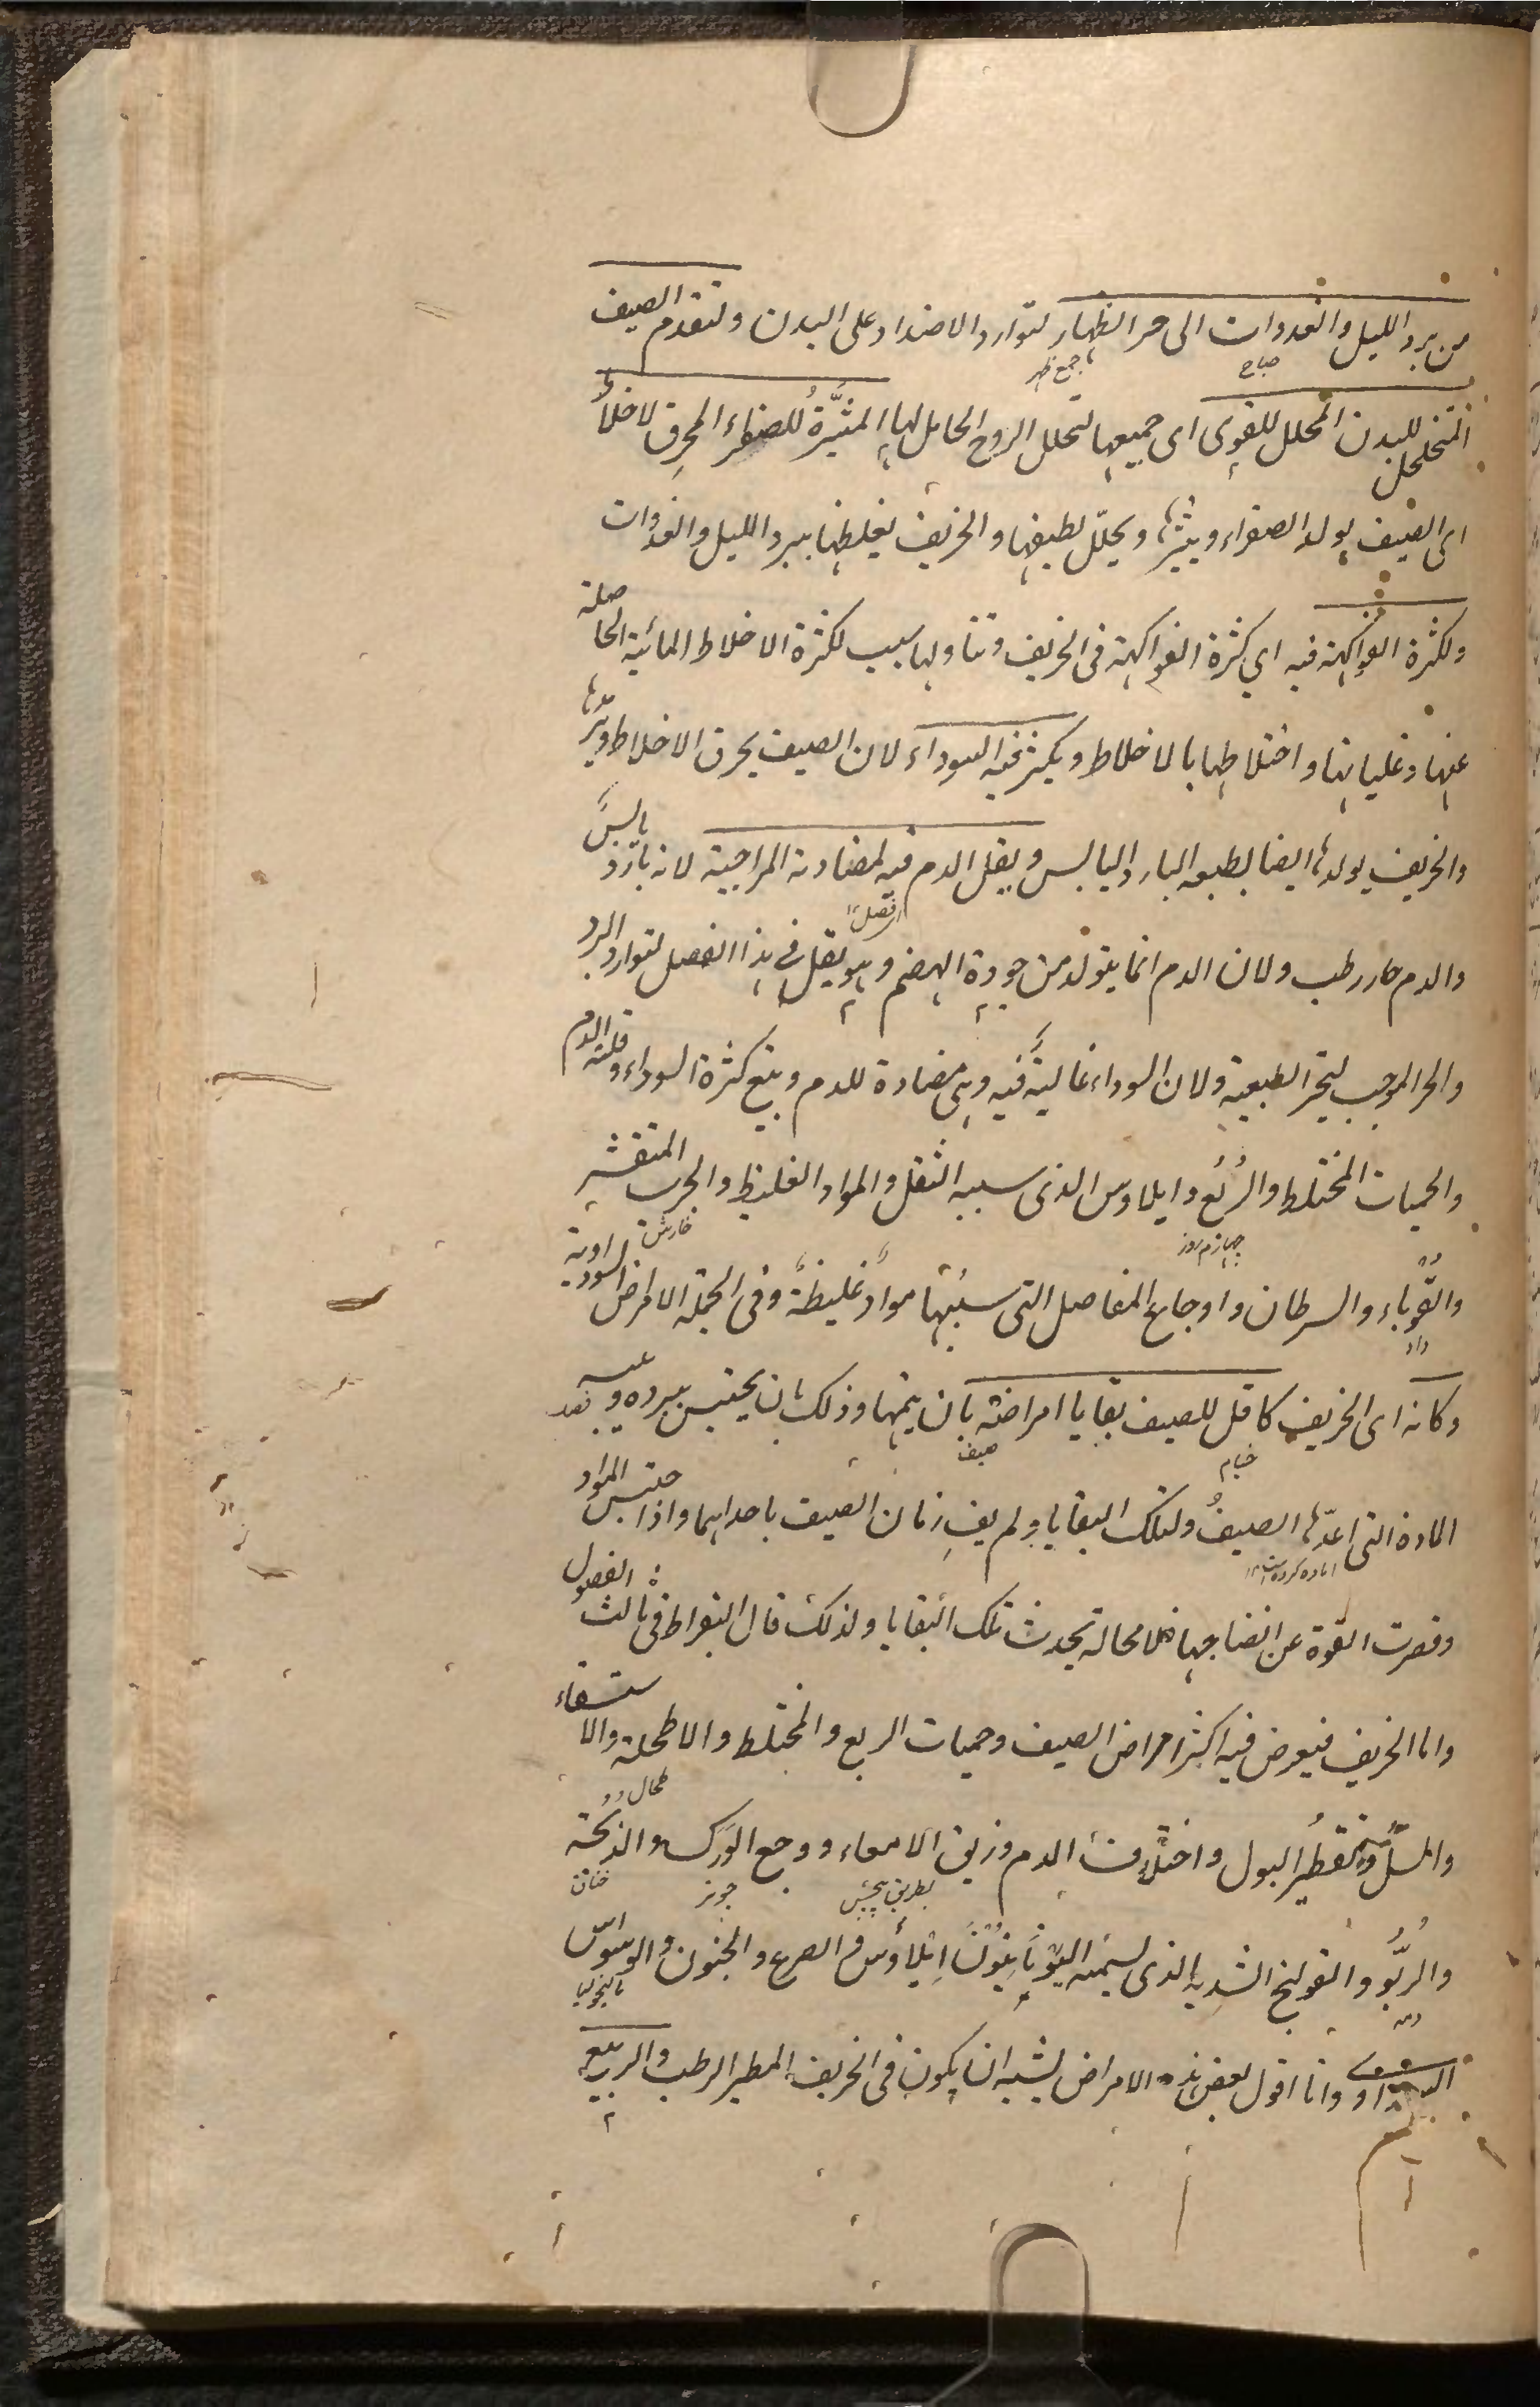 من برد الليل والغدوات الى حر الظهار لتوارد الاضداد على البدن ولتقدم الصيف
صباح
جمع ظهر
المتخلخل للبدن المحلل للقوى اى جميعها لتحلل الروح الحامل لها المثيرة للصفراء المحرق لاخلاط
اى الصيف يولد الصفراء ويثيرها ويحلل لطيفها والخريف يغلظها ببرد الليل والغدوات
ولكثرة الفواكهة فيه اي كثرة الفواكهة فى الخريف وتناولها سبب لكثرة الاخلاط المائية الحاصلة
عنها وغليانها واختلاطها بالاخلاط ويكثر فيه السوداء لان الصيف يحرق الاخلاط ويرمدها
والخريف يولدها ايضا بطبعه البارد اليابس ويقل الدم فيه لمضادته المزاجية لانه بارد يابس
والدم حار رطب ولان الدم انما يتولد من جودة الهضم وهو يقل في هذا الفصل لتوارد البرد
والحر الموجب لتحير الطبيعية ولان السوداء غالبة فيه وهى مضادة للدم ويتبع كثرة السوداء وقلة الدم
والحميات المختلط والربع وايلاوس الذى سببه الثقل والمواد الغليظ والجرب المتقشر
چهارم روز
خارش
والقوباء والسرطان واوجاع المفاصل التى سببها مواد غليظة وفى الجملة الامراض السوداوية
داد
وكانه اى الخريف كافل للصيف بقايا امراضه بان يتمها وذلك بان يحتبس ببرده ويبسه بعد
صيف
المادة التى اعدها الصيف ولتلك البقايا ولم يف زمان الصيف باحداهما واذا احتبس المواد
اماده كرده است
وقصرت القوة عن انضاجها فلا محالة تحدث تلك البقايا ولذلك قال البقراط فى ثالث الفصول
واما الخريف فيعرض فيه اكثر امراض الصيف وحميات الربع والمختلط والاطحلة والاستسقاء
طحال
والسل وتقطير البول واختلاف الدم وزلق الامعاء ووجع الورك والذبحة
خناق
والربو والقولنج الشديد الذى يسميه اليونانيون ايلاوس والصرع والجنون والوسواس
دمه
ماليخوليا
السوداوى وانا اقول بعض هذه الامراض يشبه ان يكون فى الخريف المطير الرطب والربيع